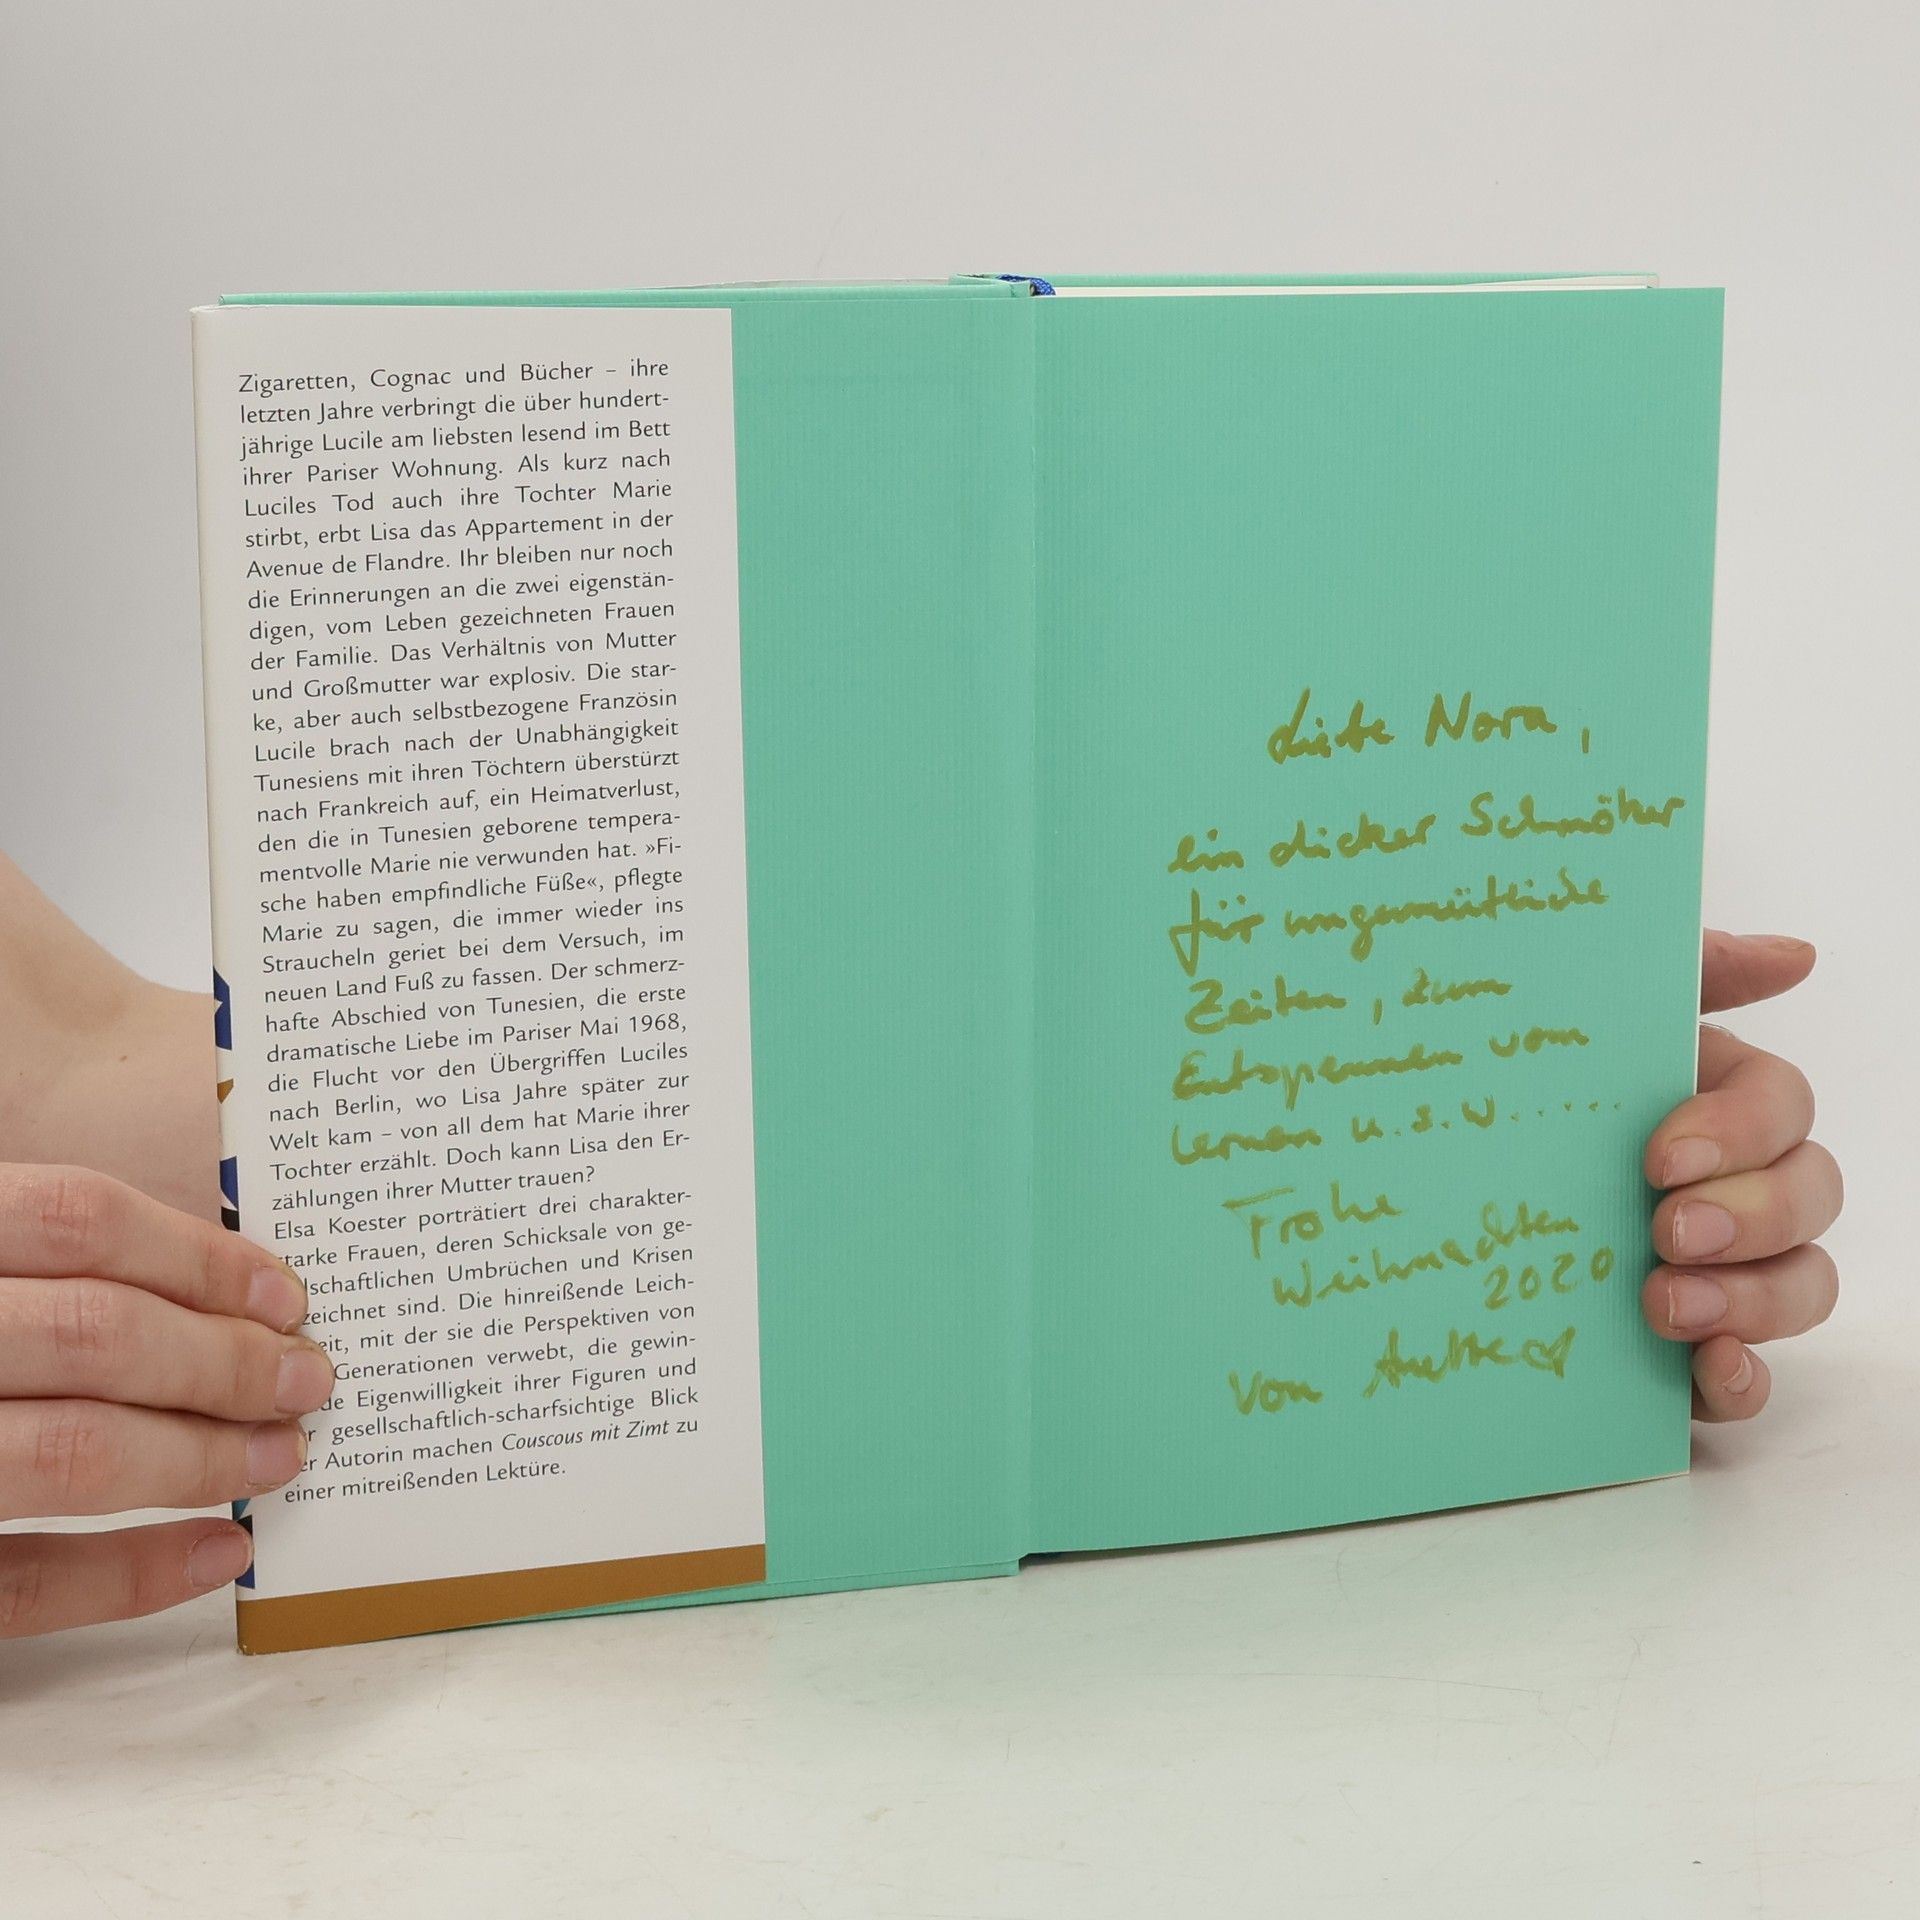 Zigaretten, Cognac und Bücher – ihre
letzten Jahre verbringt die über hundert-
jährige Lucile am liebsten lesend im Bett
ihrer Pariser Wohnung. Als kurz nach
Luciles Tod auch ihre Tochter Marie
stirbt, erbt Lisa das Appartement in der
Avenue de Flandre. Ihr bleiben nur noch
die Erinnerungen an die zwei eigenstän-
digen, vom Leben gezeichneten Frauen
der Familie. Das Verhältnis von Mutter
und Großmutter war explosiv. Die star-
ke, aber auch selbstbezogene Französin
Lucile brach nach der Unabhängigkeit
Tunesiens mit ihren Töchtern überstürzt
nach Frankreich auf, ein Heimatverlust,
den die in Tunesien geborene tempera-
mentvolle Marie nie verwunden hat. »Fi-
sche haben empfindliche Füße«, pflegte
Marie zu sagen, die immer wieder ins
Straucheln geriet bei dem Versuch, im
neuen Land Fuß zu fassen. Der schmerz-
hafte Abschied von Tunesien, die erste
dramatische Liebe im Pariser Mai 1968,
die Flucht vor den Übergriffen Luciles
nach Berlin, wo Lisa Jahre später zur
Welt kam – von all dem hat Marie ihrer
Tochter erzählt. Doch kann Lisa den Er-
zählungen ihrer Mutter trauen?
Elsa Koester porträtiert drei charakter-
starke Frauen, deren Schicksale von ge-
lschaftlichen Umbrüchen und Krisen
zeichnet sind. Die hinreißende Leich-
eit, mit der sie die Perspektiven von
Generationen verwebt, die gewin-
de Eigenwilligkeit ihrer Figuren und
r gesellschaftlich-scharfsichtige Blick
er Autorin machen Couscous mit Zimt zu
einer mitreißenden Lektüre.
Liebe Nora,
ein dicker Schmöker
für ungemütliche
Zeiten, zum
Entspannen vom
Lernen u.s.w......
Frohe
Weihnachten
2020
von Anette